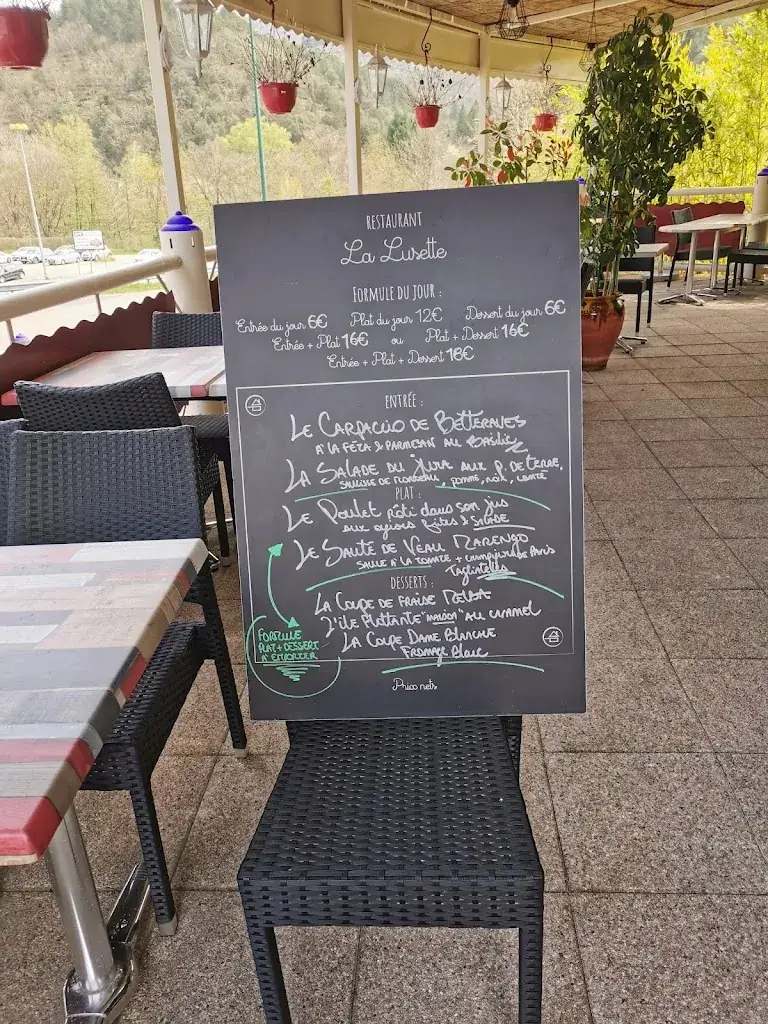 RESTAURANT
La Lusette
FORMULE DU JOUR :
Entrée du jour 6€ Plat du jour 12€ Dessert du jour 6€
Entrée + Plat 16€ ou Plat + Dessert 16€
Entrée + Plat + Dessert 18€
ENTRÉE :
LE CARPACCIO DE BETTERAVES
A LA FÉTA & PARMESAN AU BASILIC
LA SALADE DU JURA AUX P. DE TERRE,
SAUCISSE DE MORTEAU, POMME, NOIX, COMTÉ
PLAT :
LE Poulet rôti dans son jus
aux oignons frites & SALADE
LE SAUTÉ DE VEAU MARENGO
SAUCE A LA TOMATE + CHAMPIGNONS DE PARIS
TAgliatelles
DESSERTS :
LA COUPE DE FRAISE MELBA
L'ILE FLOTTANTE "MAISON" AU CARAMEL
LA COUPE DAME BLANCHE
FROMAGE BLANC
FORMULE
PLAT + DESSERT
A EMPORTER
Prix nets